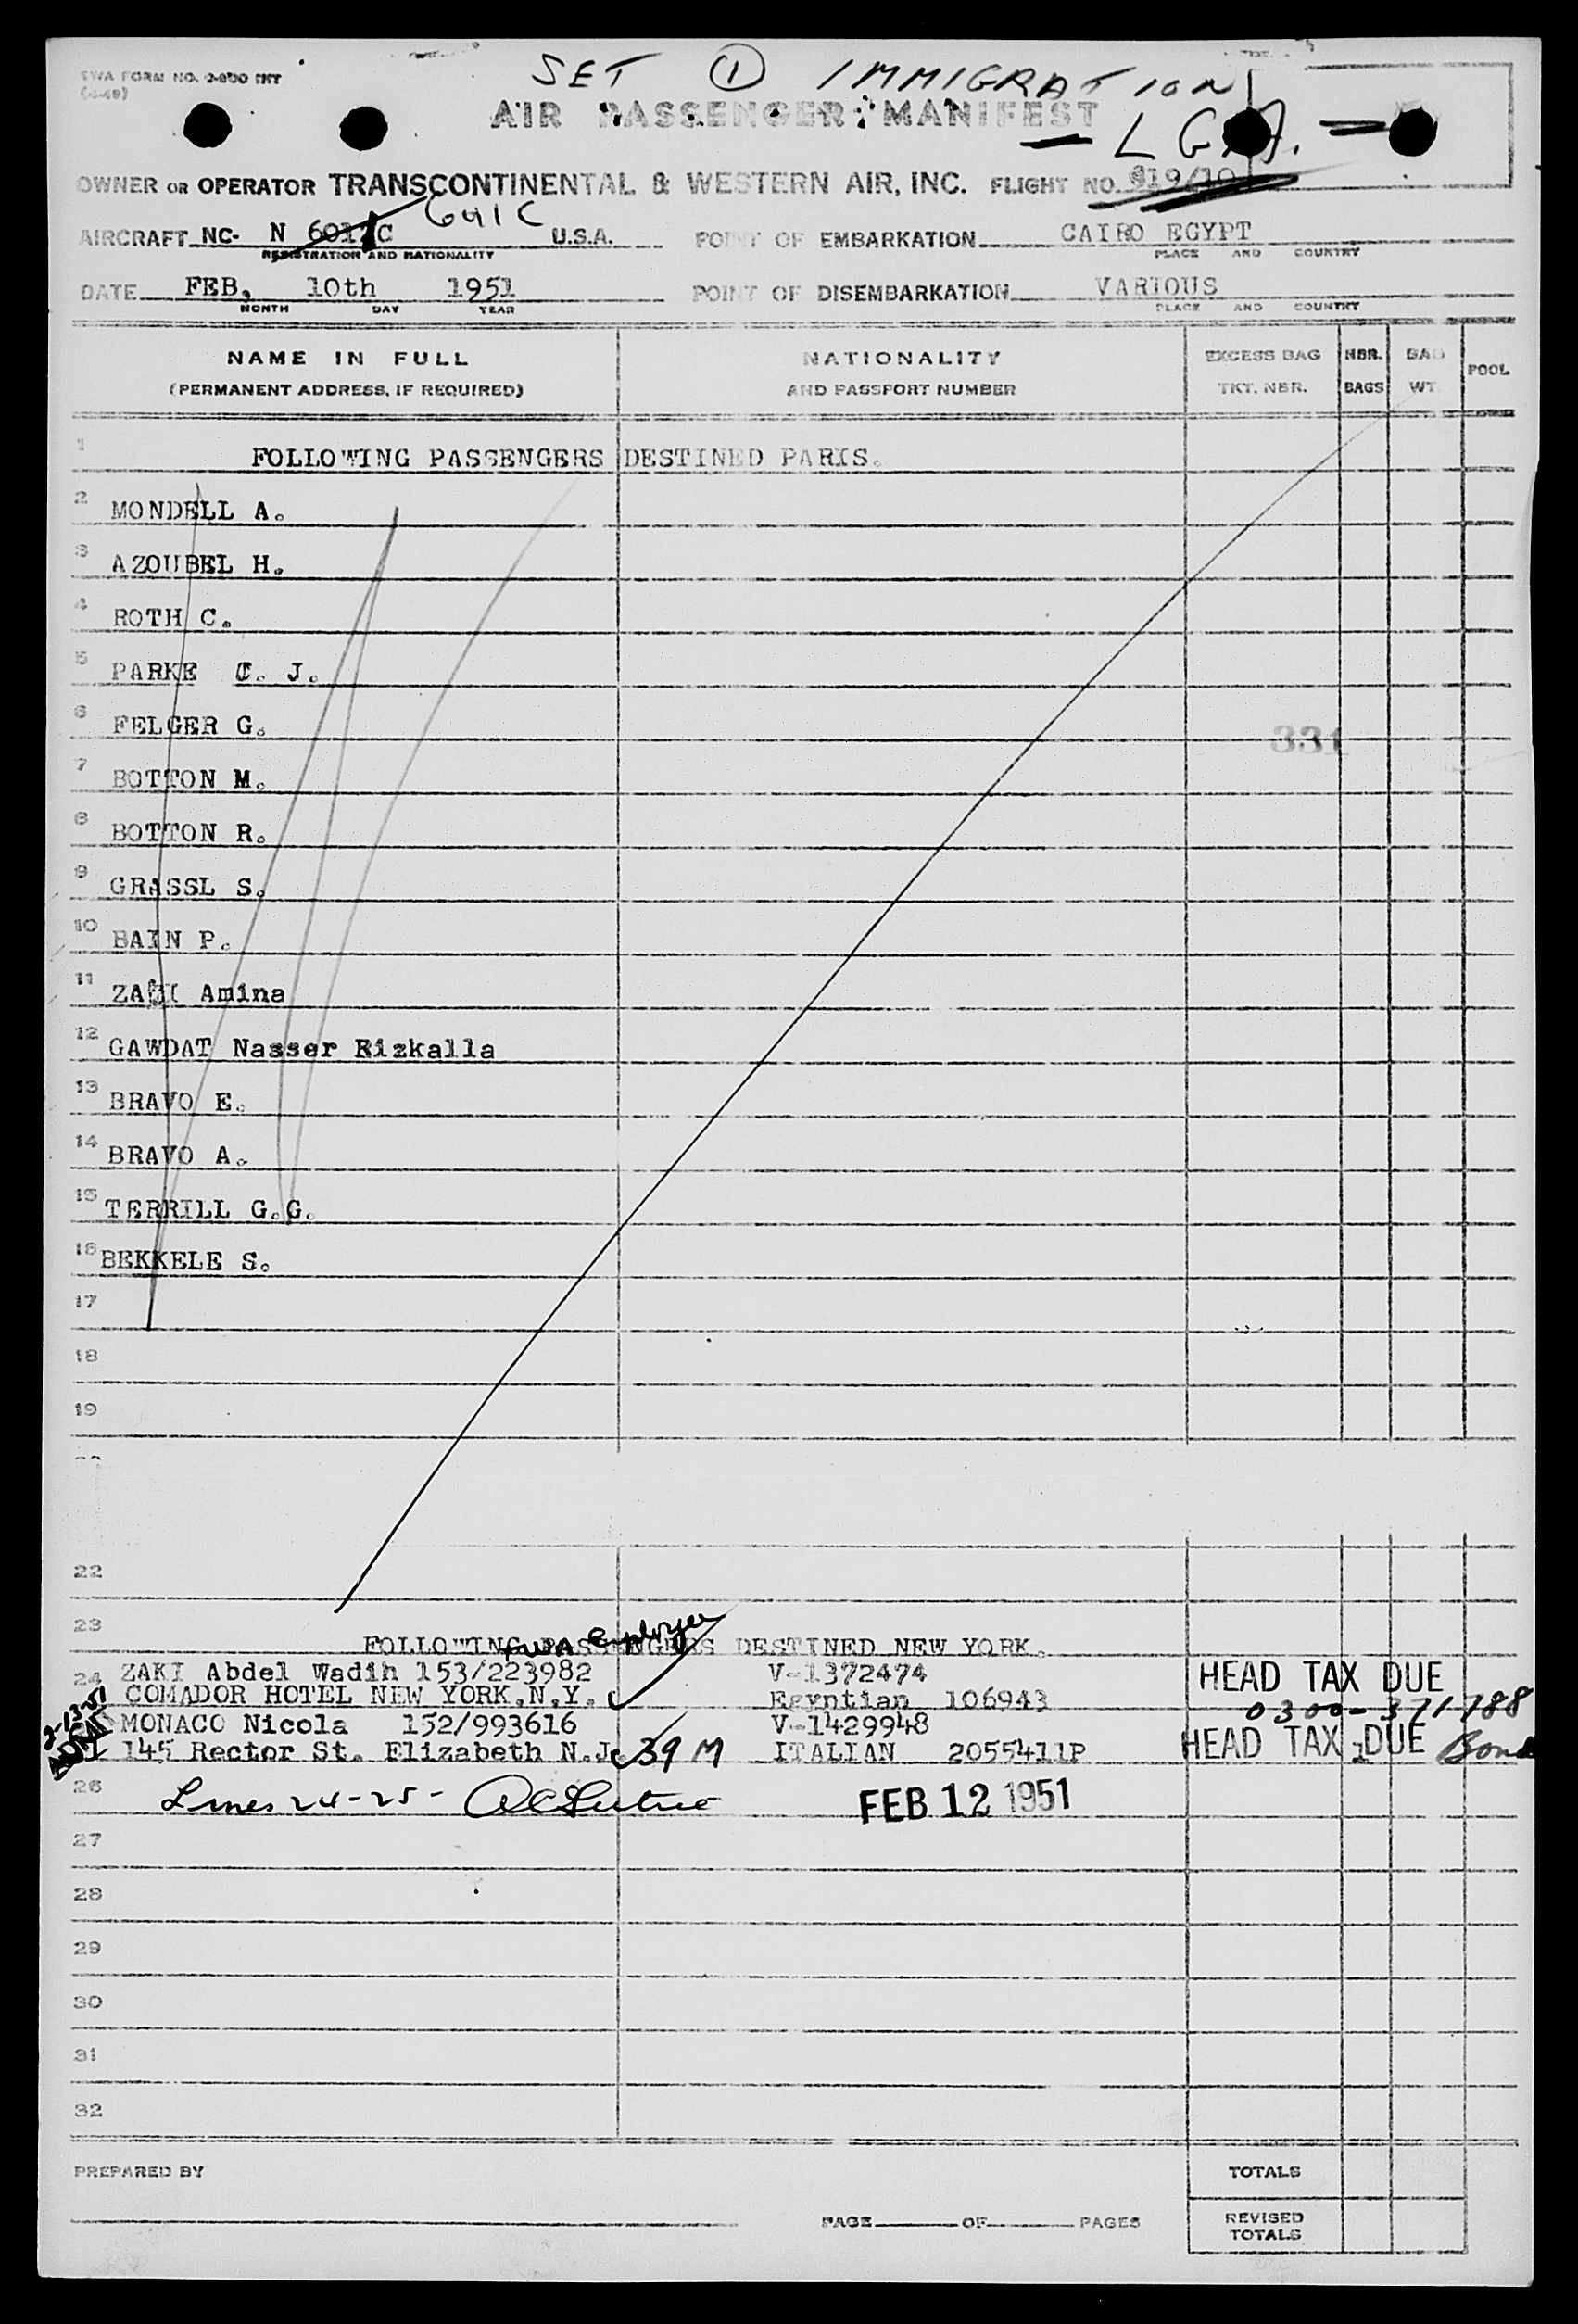 SET ① IMMIGRATION
TWA FORM NO. INT
AIR PASSENGER MANIFEST
— L G A. —
OWNER OR OPERATOR TRANSCONTINENTAL & WESTERN AIR, INC. FLIGHT NO. 919/10
641C
AIRCRAFT NC- N C U.S.A. POINT OF EMBARKATION CAIRO EGYPT
REGISTRATION AND NATIONALITY PLACE AND COUNTRY
DATE FEB, 10th 1951 POINT OF DISEMBARKATION VARIOUS
MONTH DAY YEAR PLACE AND COUNTRY
NAME IN FULL NATIONALITY EXCESS BAG NBR. BAG POOL
(PERMANENT ADDRESS, IF REQUIRED) AND PASSPORT NUMBER TKT. NBR. BAGS WT.
1 FOLLOWING PASSENGERS DESTINED PARIS.
2 MONDELL A.
3 AZOUBEL H.
4 ROTH C.
5 PARKE C. J.
6 FELGER G.
331
7 BOTTON M.
8 BOTTON R.
9 GRASSL S.
10 BAIN P.
11 ZAKI Amina
12 GAWDAT Nasser Rizkalla
13 BRAVO E.
14 BRAVO A.
15 TERRILL G.G.
16 BEKKELE S.
17
18
19
22
TWA Employee
23 FOLLOWING PASSENGERS DESTINED NEW YORK.
24 ZAKI Abdel Wadih 153/223982 V-1372474 HEAD TAX DUE
COMADOR HOTEL NEW YORK.N.Y. Egyptian 106943 0300-371788
2-13-51
MONACO Nicola 152/993616 V-1429948
145 Rector St. Elizabeth N.J. 39 M ITALIAN 2055411P HEAD TAX DUE Bond
26 Lines 24-25- FEB 12 1951
27
28
29
30
31
32
PREPARED BY TOTALS
PAGE OF PAGES REVISED TOTALS